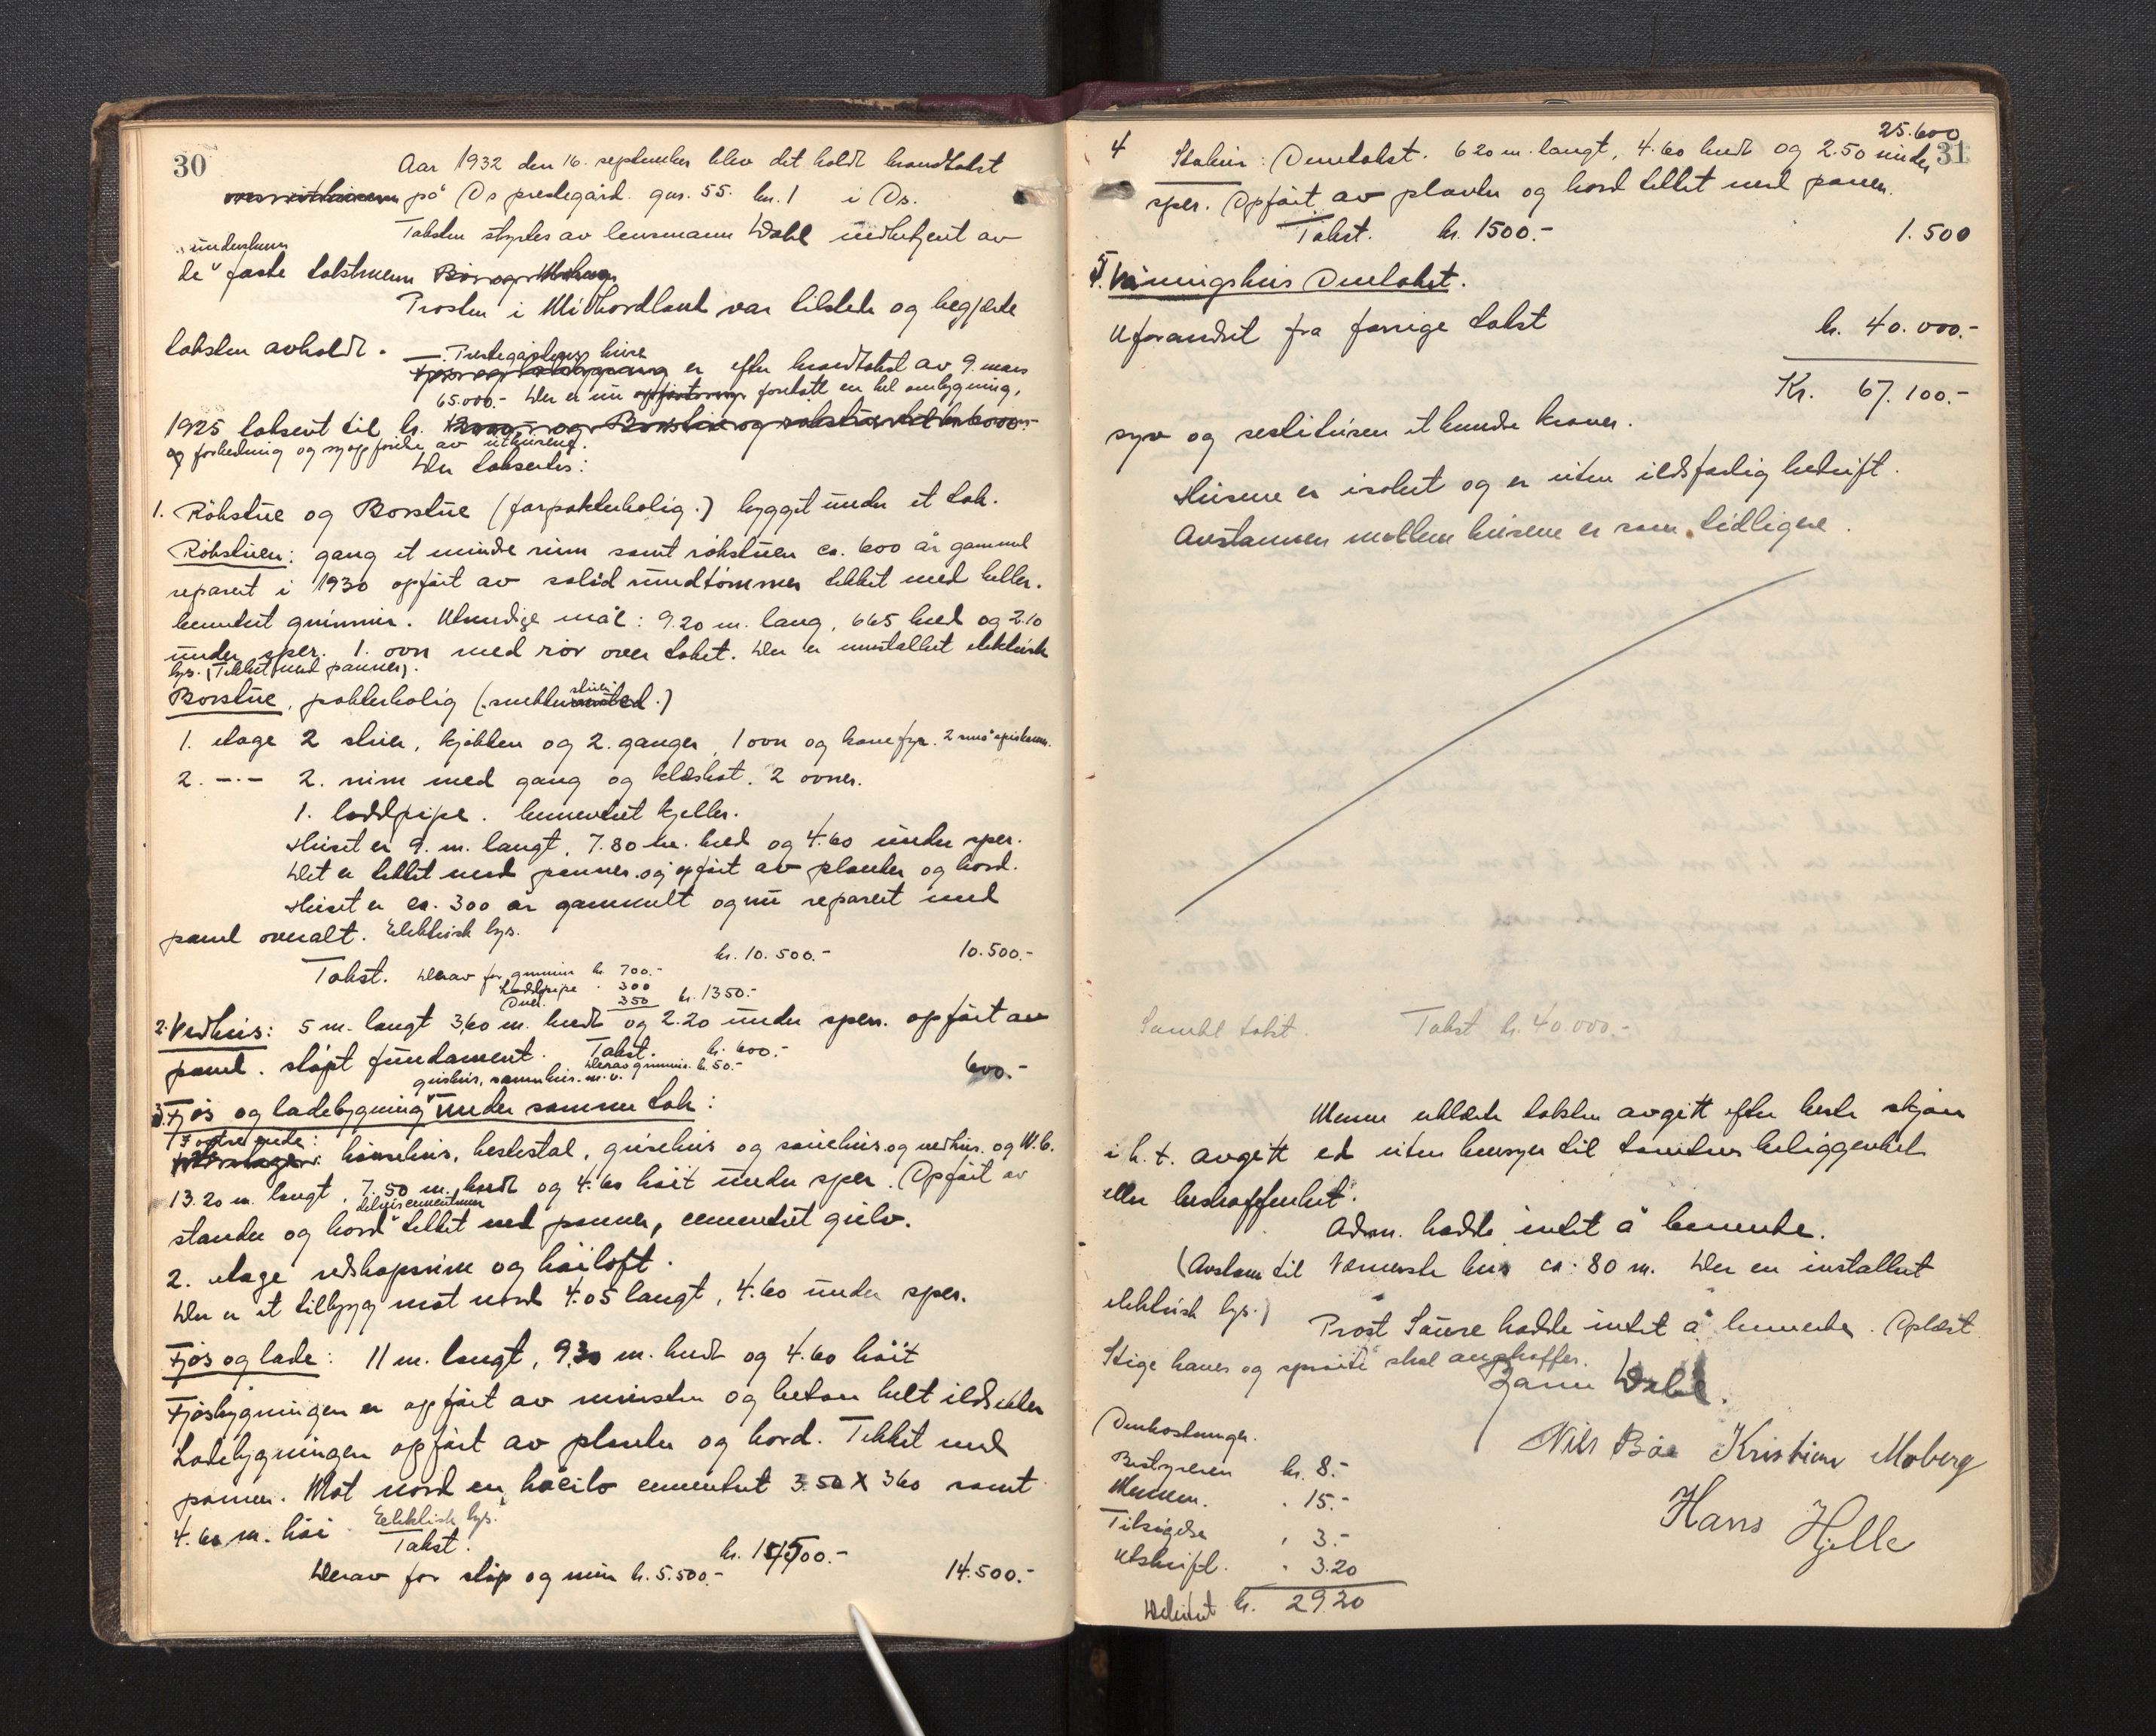 30
Aar 1932 den 16. september blev det holdt brandtakst
på Os prestegård. gnr. 55. bn. 1 i Os.
Taksten styrtes av lensmann Dahl medbetjent av
underskrevne
de faste takstmenn
Prosten i Midthordland var tilstede og begjærte
taksten avholdt.
Prestegårdens huse
er efter brandtakst av 9. mars
65.000.- Der er nu foretatt en hel ombygning,
1925 taksert til kr.
og forbedring og nyopførelse av uthusene.
Der takseres:
1. Röhstue og Borstue (forpakterbolig.) bygget under et tak.
Röhstuen: gang et mindre rum samt röhstuen ca. 600 år gammel
reparert i 1930 opført av solid rundtömmer tekket med heller.
cementert grunmur. Utvendige mål: 9.20 m. lang, 665 bred og 2.10
under sper. 1. ovn med rör over taket. Der er innstallert elektrisk
lys. (Tekket med panner).
Borstue, pakterbolig (
1. etage 2 stuer, kjökken og 2. ganger, 1 ovn og komfyr. 2 små spiskam.
2. -.- 2. rum med gang og klæskot. 2 ovner.
1. loddpipe. cementert kjeller.
Huset er 9. m. langt, 7.80 m. bred og 4.60 under sper.
Det er tekket med panner og opført av planker og bord.
Huset er ca. 300 år gammelt og nu reparert med
panel overalt. Elektrisk lys.
kr. 10.500.- 10.500.-
Takst. Derav for grunmur kr. 700.-
Loddpipe . 300
Ovner. 350 kr. 1350.-
2. Vedhus: 5 m. langt 3,60 m. bredt og 2.20 under sper. opført av
panel. støpt fundament. Takst. kr. 600.-
Derav grunmur. kr. 50.- 600.-
grishus, m. v.
3. Fjøs og ladebygning under samme tak:
I østre ende: hönsehus, hestestal, grisehus og sauehus og vedhus. og W.C.
13.20 m. langt, 7.50 m. bredt og 4.60 høit under sper. Opført av
delvis cementmur
stander og bord tekket med panner, cementert gulv.
2. etage redskapsrum og höiloft.
Der er et tilbygg mot nord 4.05 langt, 4.60 under sper.
Fjøs og lade: 11 m. langt, 9,30 m. bredt og 4.60 høit
Fjøsbygningen er opført av mursten og beton helt ildsikker
Ladebygningen opført av planker og bord. Tekket med
panner. Mot nord en höisilo cementert 3.50 X 360 samt
4.60 m. høi. Elektrisk lys.
Takst. kr. 14500.-
Derav for støp og mur kr. 5.500.- 14.500.-
25.600
31
4 Stabur: Omtakst. 620 m. langt, 4.60 bredt og 2.50 under
sper. Opført av planker og bord tekket med panner.
Takst. kr. 1500.- 1.500
5. Våningshus Omtakst.
Uforandret fra forrige takst kr. 40.000.-
Kr. 67.100.-
syv og sekstitusen ethundre kroner.
Husene er isolert og er uten ildsfarlig bedrift.
Avstannen mellem husene er som tidligere.
Samlet takst. Takst kr. 40.000.-
Menne erklærte taksten avgitt efter beste skjøn
i h. t. avgitt ed uten hensyn til tomtens beliggenhet
eller beskaffenhet.
Adm. hadde intet å bemerke.
(Avstan til nærmeste hus ca. 80 m. Der er installert
elektrisk lys.)
Prost Saure hadde intet å bemerke. Oplæst.
Stige haves og sprøite skal anskaffes.
Dahl.
Nils Bøe Kristian Moberg
Hans Hjelle
Omkostninger.
Bestyreren kr. 8.-
Mennene. . 15.-
Tilsigelse . 3.-
Utskrift. . 3.20
Debitert kr. 29.20